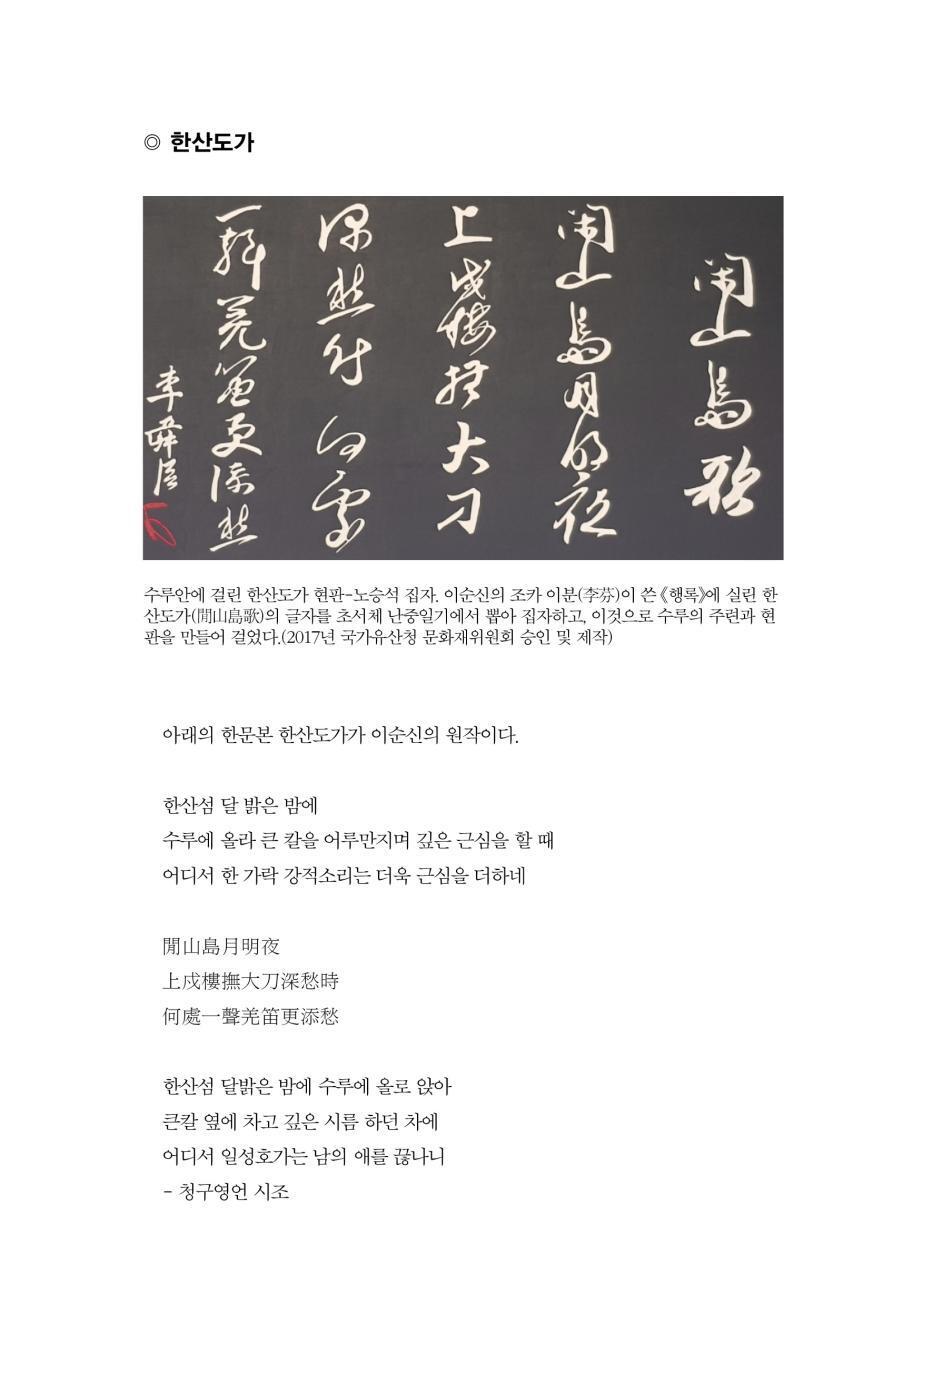 ◎ 한산도가
閑山島歌
閑山島月明夜
上戍樓撫大刀
深愁時何處
一聲羌笛更添愁
李舜臣
수루안에 걸린 한산도가 현판-노승석 집자. 이순신의 조카 이분(李芬)이 쓴《행록》에 실린 한
산도가(閒山島歌)의 글자를 초서체 난중일기에서 뽑아 집자하고, 이것으로 수루의 주련과 현
판을 만들어 걸었다.(2017년 국가유산청 문화재위원회 승인 및 제작)
아래의 한문본 한산도가가 이순신의 원작이다.
한산섬 달 밝은 밤에
수루에 올라 큰 칼을 어루만지며 깊은 근심을 할 때
어디서 한 가락 강적소리는 더욱 근심을 더하네
閒山島月明夜
上戍樓撫大刀深愁時
何處一聲羌笛更添愁
한산섬 달밝은 밤에 수루에 올로 앉아
큰칼 옆에 차고 깊은 시름 하던 차에
어디서 일성호가는 남의 애를 끊나니
- 청구영언 시조